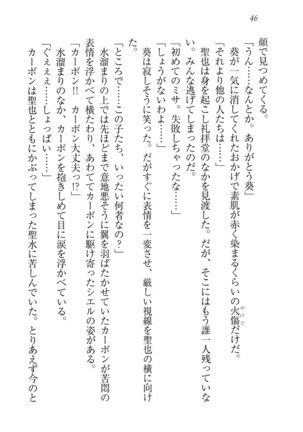 46
顔で見つめてくる。
「うん……なんとか。ありがとう葵」
葵が一気に消してくれたおかげで素肌が赤く染まるくらいの火傷だけだ。
「それより他の人たちは……」
聖也は身を起こし礼拝堂のなかを見渡した。だが、そこにはもう誰一人残っていな
い。みんな逃げてしまったのだ。
「初めてのミサ。失敗しちゃったな……」
「しょうがないよ」
葵は寂しそうに笑った。だがすぐに表情を一変させ、厳しい視線を聖也の横に向け
た。
「ところで……この子たち、いったい何者なの？」
水溜まりの上では先ほどまで意地悪そうに翼を羽ばたかせていたカーボンが苦悶の
表情を浮かべて横たわり、あわててカーボンに駆け寄ったシエルの姿がある。
「カーボン!!　カーボン大丈夫っ!?」
水溜まりのなか、カーボンを抱きしめて目に涙を浮かべている。
「ぐぇぇぇ……しょっぱいぃ……」
カーボンは聖也とともにかぶってしまった聖水に苦しんでいた。とりあえず今のと